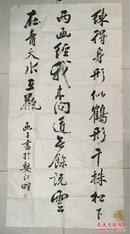 練得身形似鶴形千株松下
兩函經我來問道無餘說雲
在青天水在瓶